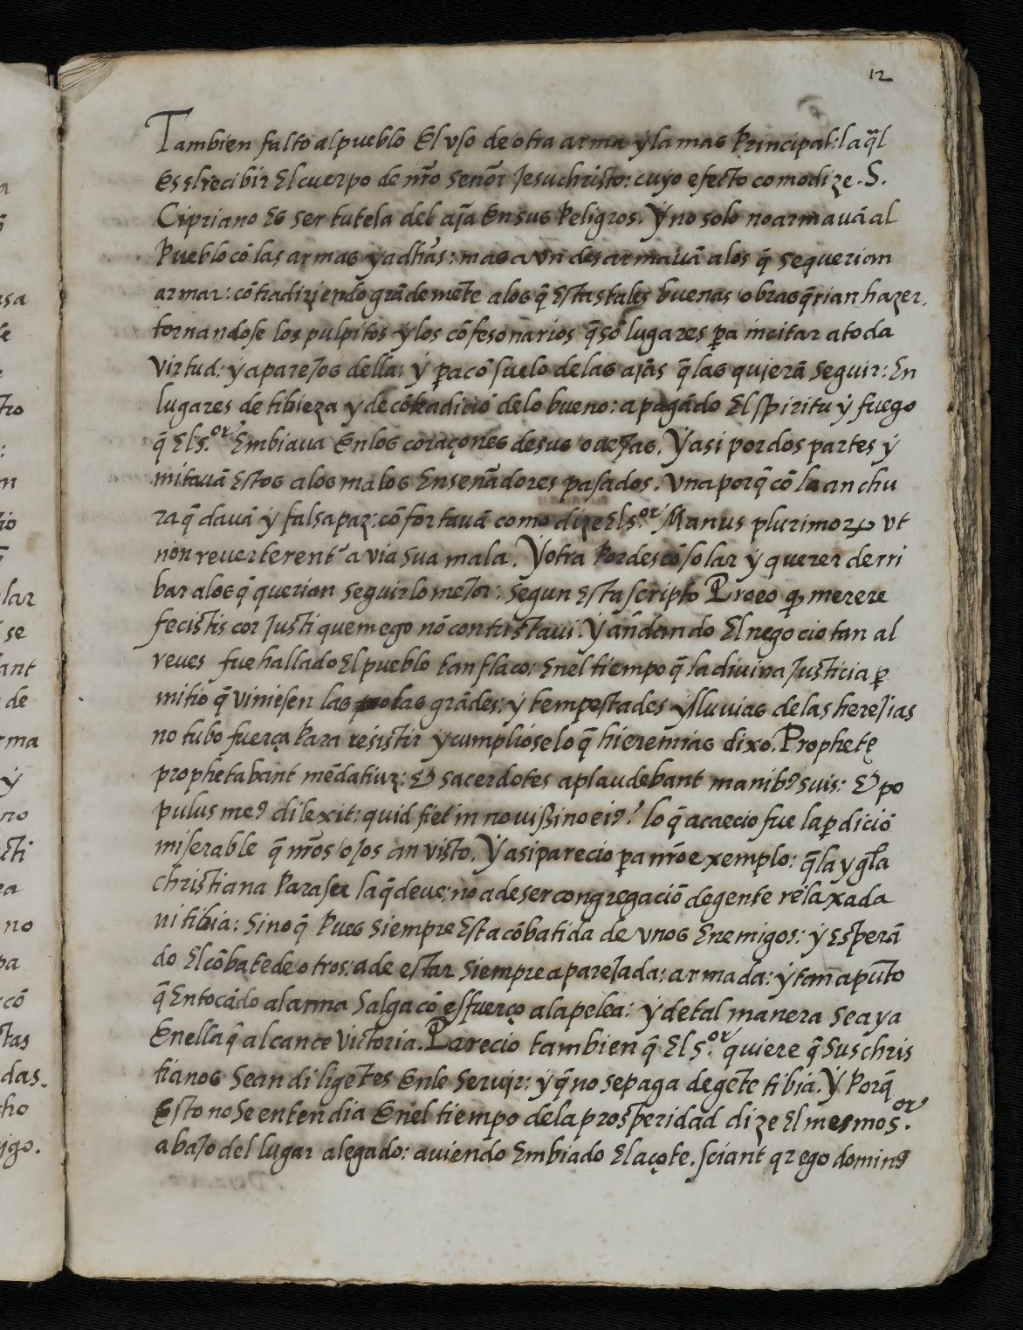 12
Tambien falto al pueblo El vso de otra arma y la mas Principal: la q̃l
Es el recibir El cuerpo de nr̃o Señor Jesuchristo: cuyo efecto como dize. S.
Cipriano Es ser tutela del aĩa En sus Peligros. Y no solo no armauã al
Pueblo cõ las armas ya dhãs: mas a vn desarmauã alos q̃ se querian
armar: cõtradiziendo grãdemẽte alos q̃ Estas tales buenas obras q̃rian hazer.
tornandose los pulpitos y los cõfesonarios q̃ sõ lugares p̱a incitar a toda
virtud: y aparejos della: y p̱a cõsuelo delas aĩas q̃ las quierã seguir: En
lugares de tibieza y de cõtradiciõ delo bueno: apagãdo El spiritu y fuego
q̃ El s.or Embiaua En los coraçones de sus ouejas. Y asi por dos partes y
mitauã Estos a los malos Enseñadores pasados. Vna porq̃ cõ la anchu
ra q̃ dauã y falsa paz: cõfortauã como dize El s.or Manus plurimoꝝ vt
non reuerterentr a via sua mala. Y otra Por descõsolar y querer derri
bar alos q̃ querian seguir lo mejor: segun Esta scripto Pro eo ꝙ merere
fecistis cor Justi quem ego nõ contristaui. Y andando El negocio tan al
reues fue hallado El pueblo tan flaco: En el tiempo q̃ la diuina Justicia p̱
mitio q̃ viniesen las grãdes: y tempestades y lluuias de las herejias
no tubo fuerça Para resistir y cumpliose lo q̃ hieremias dixo. Prophetę
prophetabant mẽdatiuꝫ: & sacerdotes aplaudebant manibꝰ suis: & po
pulus meꝰ dilexit: quid fiet in nouißino eiꝰ? lo q̃ acaecio fue la p̱diciõ
miserable q̃ nr̃os ojos an visto. Y asi parecio p̱a nr̃o exemplo: q̃ la ygl̃a
christiana Para ser la q̃ deue: no a de ser congregaciõ de gente relaxada
ni tibia: Sino q̃ Pues siempre Esta cõbatida de vnos Enemigos: y Esperã
do El cõbate de otros: a de estar siempre aparejada: armada: y tan apunto
q̃ En tocãdo al arma Salga cõ esfuerço ala pelea: y de tal manera Se aya
En ella q̃ alcance Victoria. Parecio tambien q̃ El s.or quiere q̃ Sus chris
tianos Sean diligẽtes En le Seruir: y q̃ no se paga de gẽte tibia. Y Porq̃
Esto no Se entendia En el tiempo dela prosperidad dize El mesmo s.or
abajo del lugar alegado: auiendo Embiado El açote. sciant qꝫ ego dominꝰ